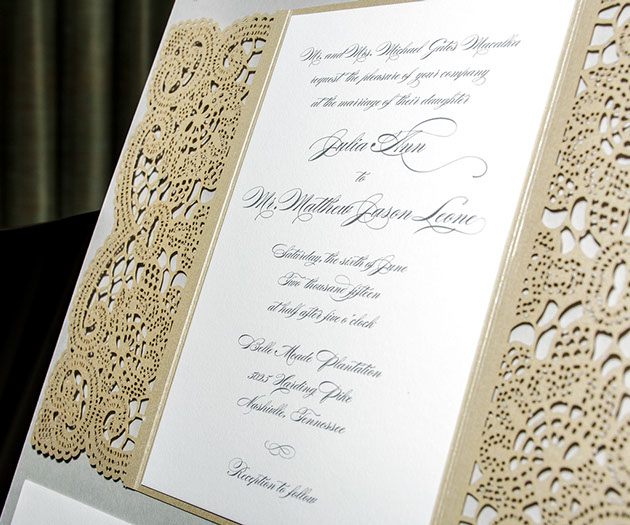 Mr. and Mrs. Michael Gates Macatha
request the pleasure of your company
at the marriage of their daughter
Julia Ann
to
Mr. Matthew Jason Leone
Saturday, the sixth of June
Two thousand fifteen
at half after five o'clock
Belle Meade Plantation
5025 Harding Pike
Nashville, Tennessee
Reception to follow